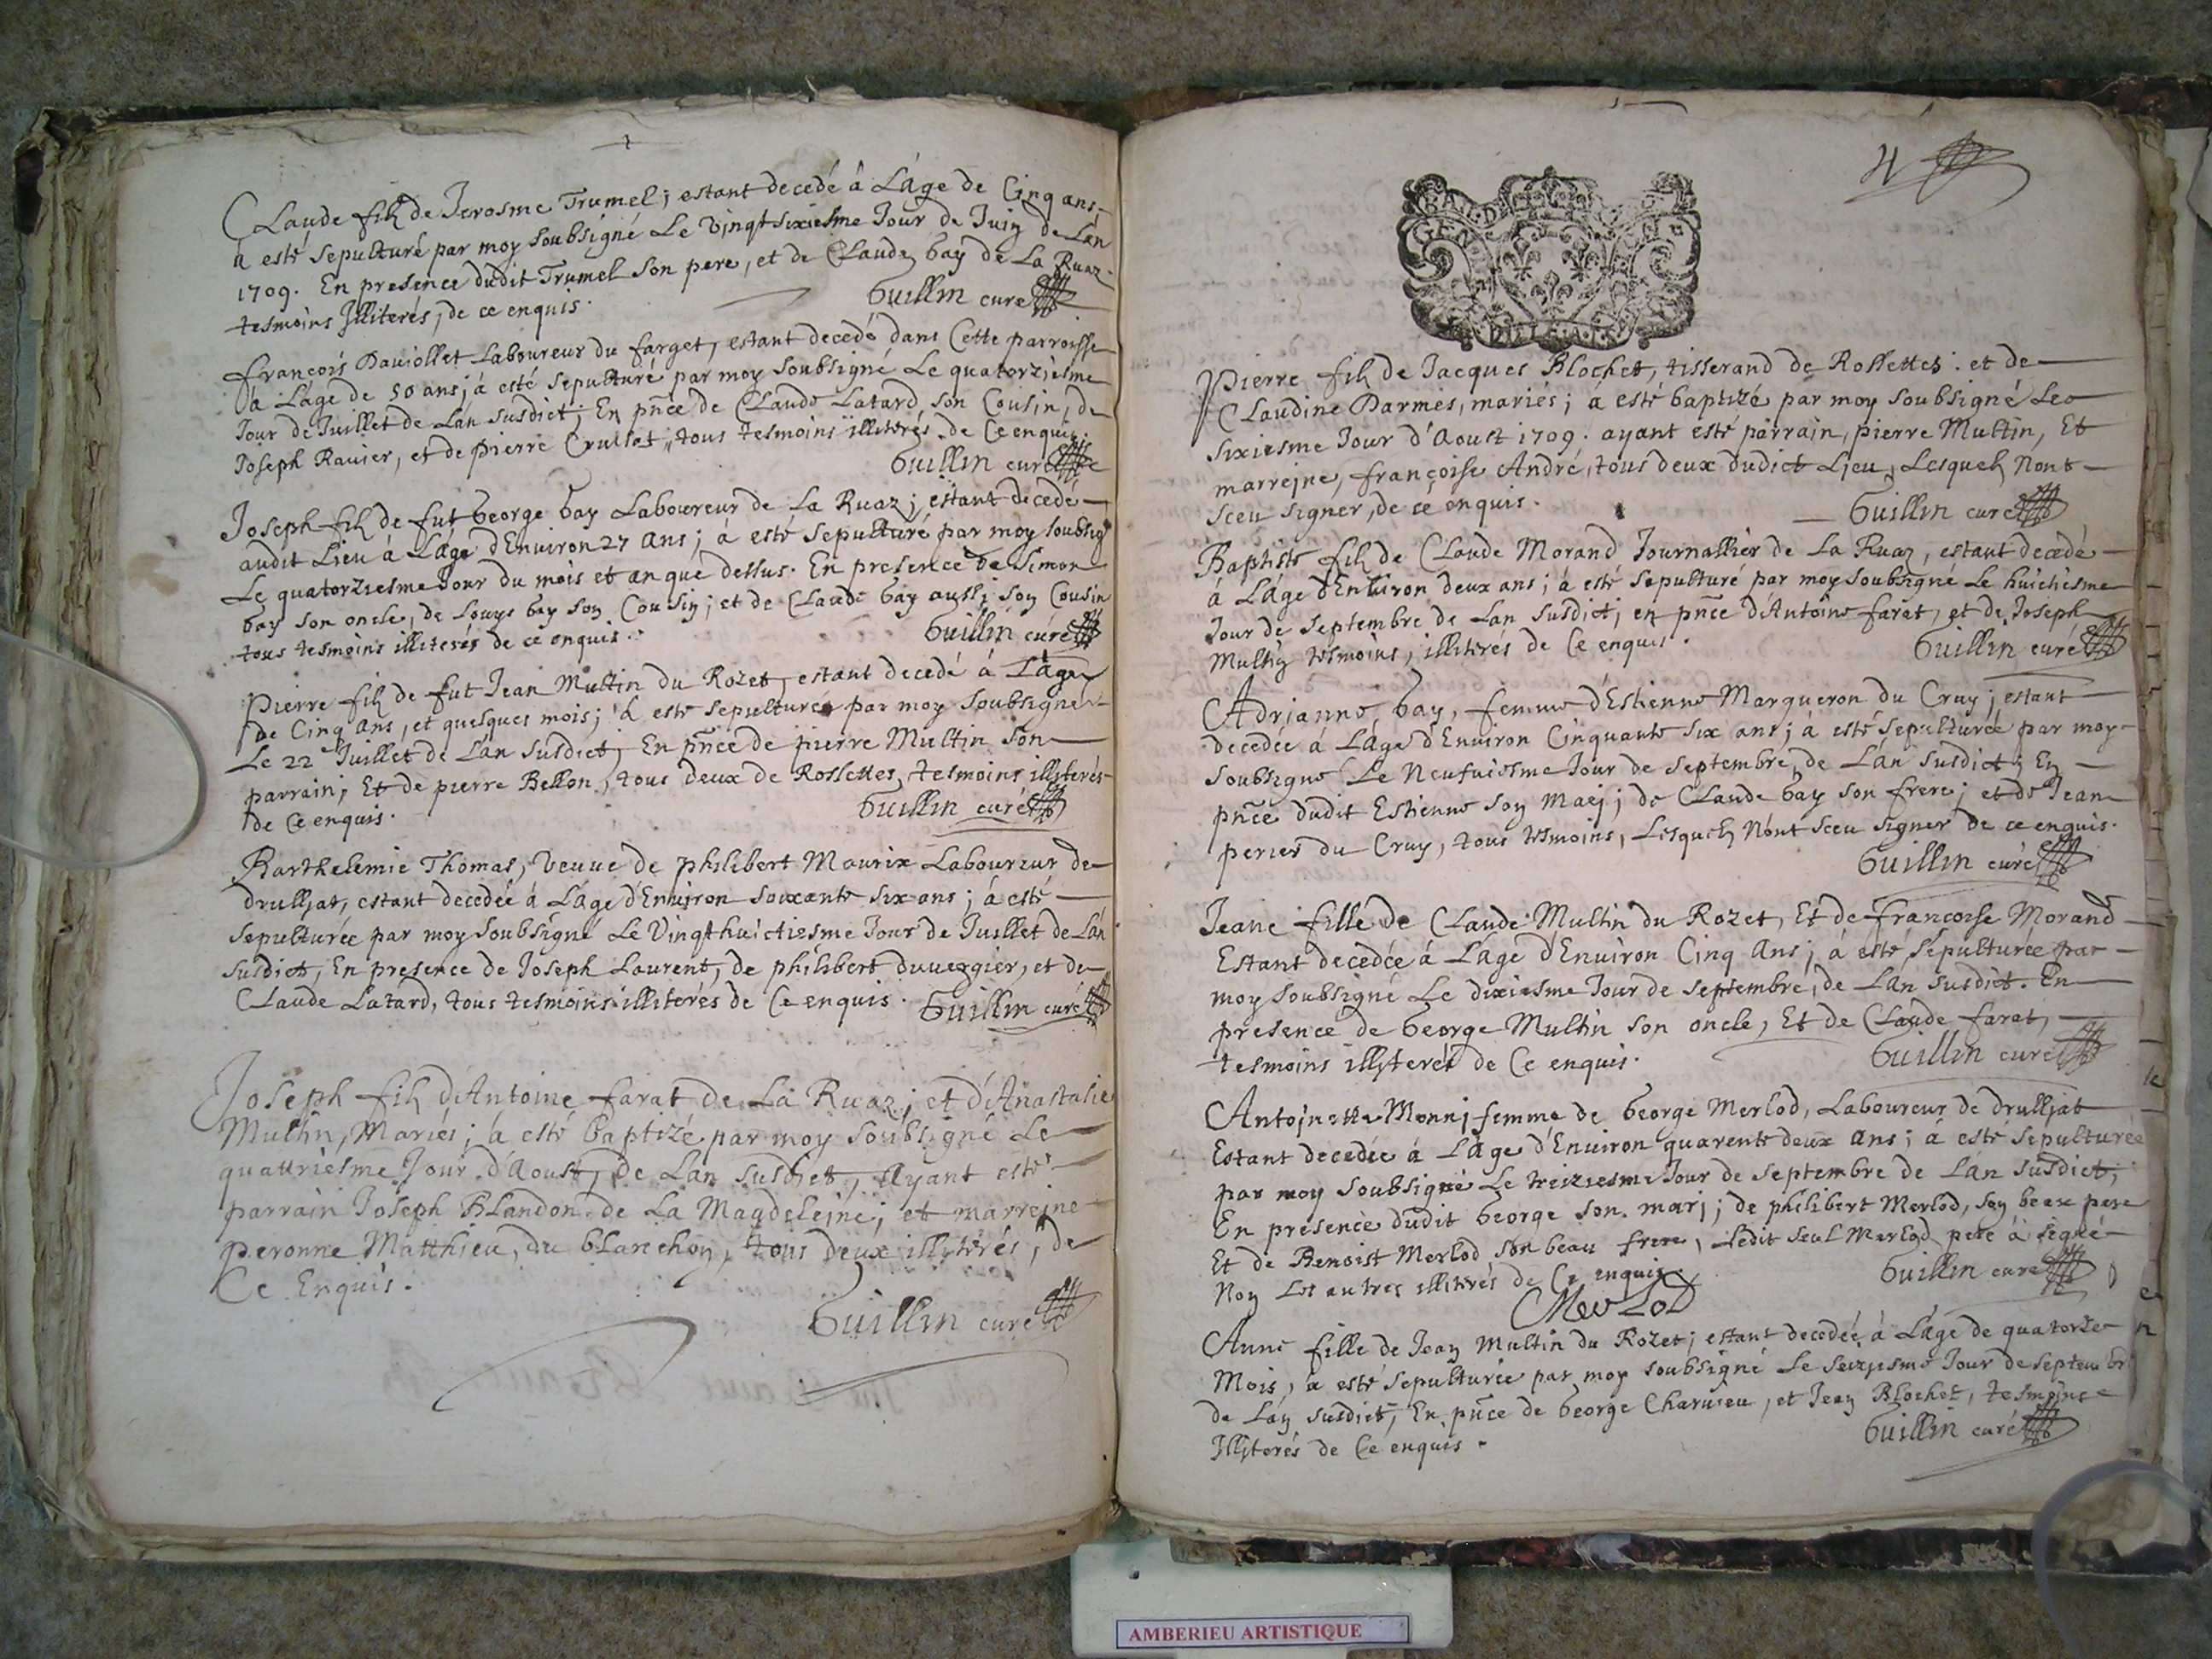 Claude filz de Jerosme Trumel; estant decedé à L'áge de Cinq ans;
à esté sepulturé par moy soubsigné Le vingtsixiesme Jour de Juin de Lán
1709. En presence dudit Trumel son pere, et de Claude bay de La Ruaz.
tesmoins Illiterés, de ce enquis.
Guillin curé
François Daviollet Laboureur du farget, estant decedé dans Cette parroisse
à Láge de 50 ans; à esté sepulturé par moy soubsigné Le quatorziesme
Jour de Juillet de Lan susdict; En pñce de Claude Latard son Cousin, de
Joseph Ravier, et de Pierre Crullat, tous tesmoins illiterés de Ce enquis.
Guillin curé
Joseph filz de fut George bay Laboureur de La Ruaz; estant decedé
audit Lieu à Láge d'Environ 27 ans; à esté sepulturé par moy soubsig
Le quatorziesme Jour du mois et an que dessus. En presence de Simon
bay son oncle, de Louys bay son Cousin; et de Claude bay aussi son Cousin
tous tesmoins illiterés de ce enquis.
Guillin curé
Pierre filz de fut Jean Multin du Rozet, estant decedé à L'áge
de Cinq ans, et quelques mois; à esté sepulturé par moy soubsigné
Le 22 Juillet de Lán susdict, En pñce de pierre Multin son
parrain; Et de pierre Bellon, tous deux de Rossettes, tesmoins illyterés
de Ce enquis.
Guillin curé
Barthelemie Thomas, veuve de philibert Maurix Laboureur de
drulljat, estant decedée à L'áge d'Environ soixante six ans; à esté
sepulturée par moy soubsigné Le Vingthuictiesme Jour de Juillet de Lán
susdict, En presence de Joseph Laurent, de philibert duvergier, et de
Claude Latard, tous tesmoins illiterés de Ce enquis.
Guillin curé
Joseph filz d'Antoine farat de La Ruaz; et d'Anastasie
Multin, Mariés; à esté baptizé par moy soubsigné Le
quatriesme Jour d'Aoust, de Lan susdict, Ayant esté
parrain Joseph Blandon de La Magdeleine; et marreine
peronne Matthieu, du blanchon, tous deux illyterés, de
Ce Enquis.
Guillin curé
4
GEN
Pierre filz de Jacques Blochet, tisserand de Rossettes: et de
Claudine Darmes, mariés; a esté baptizé par moy soubsigné Le
sixiesme Jour d'Aoust 1709. ayant esté parrain, pierre Multin, Et
marrejne, françoise André, tous deux dudict Ljeu, Lesquelz Nont
sceu signer, de ce enquis.
Guillin curé
Baptiste filz de Claude Morand Journallier de La Ruaz, estant decedé
à Láge d'Environ deux ans; à esté sepulturé par moy soubsigné Le huictiesme
Jour de Septembre de Lan susdict; en pñce d'Antoine farat, et de Joseph
Multin tesmoins, illiterés de Ce enquis.
Guillin curé
Adrianne bay, femme d'Estienne Margueron du Cruy; estant
decedée à Láge d'Environ Cinquante six ans; à esté sepulturée par moy
soubsigné Le Neufuiesme Jour de Septembre, de Lán susdict; En
pñce dudit Estienne son Marj; de Claude bay son frere; et de Jean
perier du Cruy, tous tesmoins, Lesquelz Nont sceu signer de ce enquis.
Guillin curé
Jeane fille de Claude Multin du Rozet, Et de françoise Morand
Estant decedée à L'áge d'Environ Cinq Ans; à esté sepulturée par
moy soubsigné Le dixiesme Jour de Septembre, de Lán susdict. En
presence de George Multin son oncle, Et de Claude farat,
tesmoins illyterés de Ce enquis.
Guillin curé
Antojnette Monnj femme de George Merlod, Laboureur de drulljat
Estant decedée à L'áge d'Environ quarente deux ans; à esté sepulturée
par moy soubsigné Le treiziesme Jour de Septembre de Lán susdict;
En presence dudit George son marj; de philibert Merlod, son beau pere
Et de Benoist Merlod son beau frere, Ledit seul Merlod pere à signé
Non Les autres illiterés de Ce enquis.
Guillin curé
Merlod
Anne fille de Jean Multin du Rozet; estant decedée à L'áge de quatorze
Mois, à esté sepulturée par moy soubsigné Le seiziesme Jour de septembre
de Lán susdict; En pñce de George Charvieu, et Jean Blochet, tesmoins
Illyterés de Ce enquis.
Guillin curé
AMBERIEU ARTISTIQUE